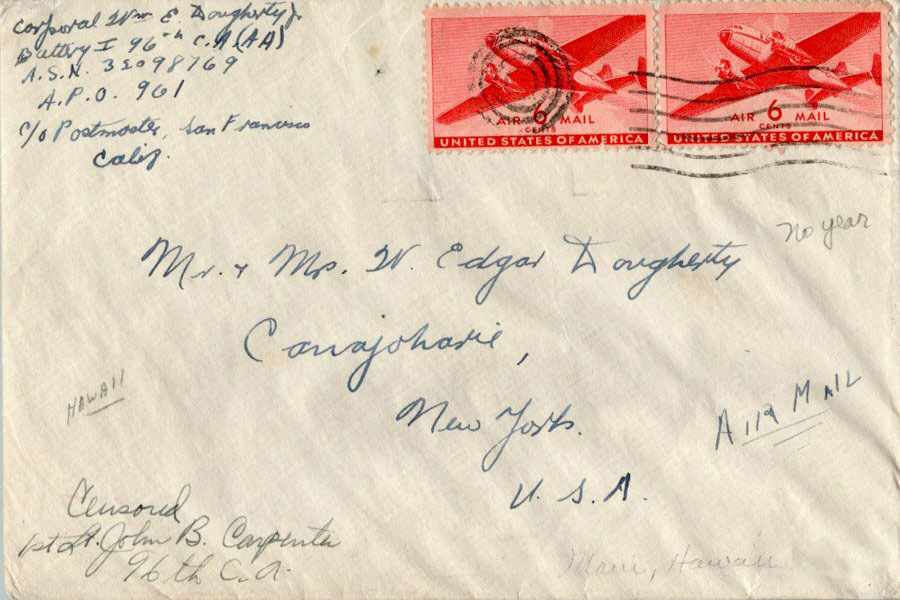 Corporal Wm E. Dougherty Jr
Battery I 96th C.A. (AA)
A.S.N. 32098769
A.P.O. 961
c/o Postmaster, San Francisco
Calif.
AIR 6 MAIL
CENTS
UNITED STATES OF AMERICA
AIR 6 MAIL
CENTS
UNITED STATES OF AMERICA
no year
Mr. & Mrs. W. Edgar Dougherty
Canajoharie,
HAWAII
New York.
AIR MAIL
U. S. A.
Censored
1st Lt. John B. Carpenter
96th C.A.
Maui, Hawaii